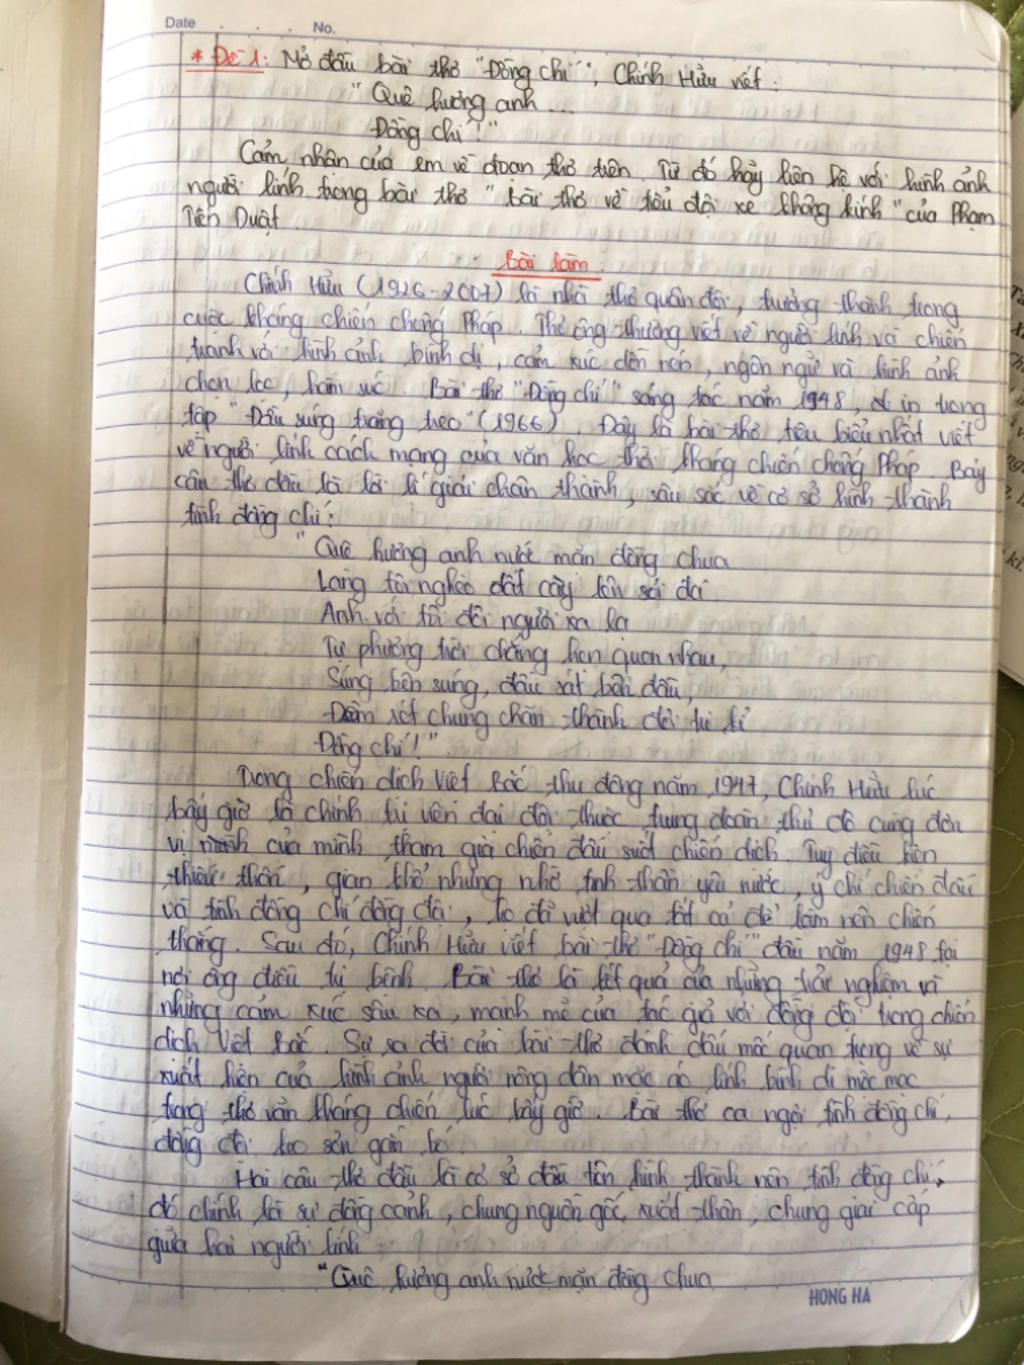 Date . . No.
* Đề 1: Mở đầu bài thơ "Đồng chí", Chính Hữu viết:
"Quê hương anh ...
Đồng chí!"
Cảm nhận của em về đoạn thơ trên. Từ đó hãy liên hệ với hình ảnh
người lính trong bài thơ "bài thơ về tiểu đội xe không kính" của Phạm
Tiến Duật.
Bài làm:
Chính Hữu (1926-2007) là nhà thơ quân đội, trưởng thành trong
cuộc kháng chiến chống Pháp. Thơ ông thường viết về người lính và chiến
tranh với hình ảnh bình dị, cảm xúc dồn nén, ngôn ngữ và hình ảnh
chọn lọc, hàm súc. Bài thơ "Đồng chí" sáng tác năm 1948, in trong
tập "Đầu súng trăng treo" (1966). Đây là bài thơ tiêu biểu nhất viết
về người lính cách mạng của văn học thời kháng chiến chống Pháp. Bảy
câu thơ đầu là lời lí giải chân thành, sâu sắc về cơ sở hình thành
tình đồng chí:
"Quê hương anh nước mặn đồng chua
Làng tôi nghèo đất cày lên sỏi đá.
Anh với tôi đôi người xa lạ
Tự phương trời chẳng hẹn quen nhau,
Súng bên súng, đầu sát bên đầu,
Đêm rét chung chăn thành đôi tri kỉ
Đồng chí!".
Trong chiến dịch Việt Bắc thu đông năm 1947, Chính Hữu lúc
bấy giờ là chính trị viên đại đội thuộc trung đoàn thủ đô cùng đơn
vị của mình tham gia chiến đấu suốt chiến dịch. Tuy điều kiện
thiếu thốn, gian khổ nhưng nhờ tinh thần yêu nước, ý chí chiến đấu
và tình đồng chí đồng đội, họ đã vượt qua tất cả để làm nên chiến
thắng. Sau đó, Chính Hữu viết bài thơ "Đồng chí" đầu năm 1948 tại
nơi ông điều trị bệnh. Bài thơ là kết quả của những trải nghiệm và
những cảm xúc sâu xa, mạnh mẽ của tác giả với đồng đội trong chiến
dịch Việt Bắc. Sự ra đời của bài thơ đánh dấu mốc quan trọng về sự
xuất hiện của hình ảnh người nông dân mặc áo lính bình dị mộc mạc
trong thơ văn kháng chiến lúc bấy giờ. Bài thơ ca ngợi tình đồng chí,
đồng đội keo sơn gắn bó.
Hai câu thơ đầu là cơ sở đầu tiên hình thành nên tình đồng chí,
đó chính là sự đồng cảnh, chung nguồn gốc xuất thân, chung giai cấp
giữa hai người lính.
"Quê hương anh nước mặn đồng chua
HONG HA